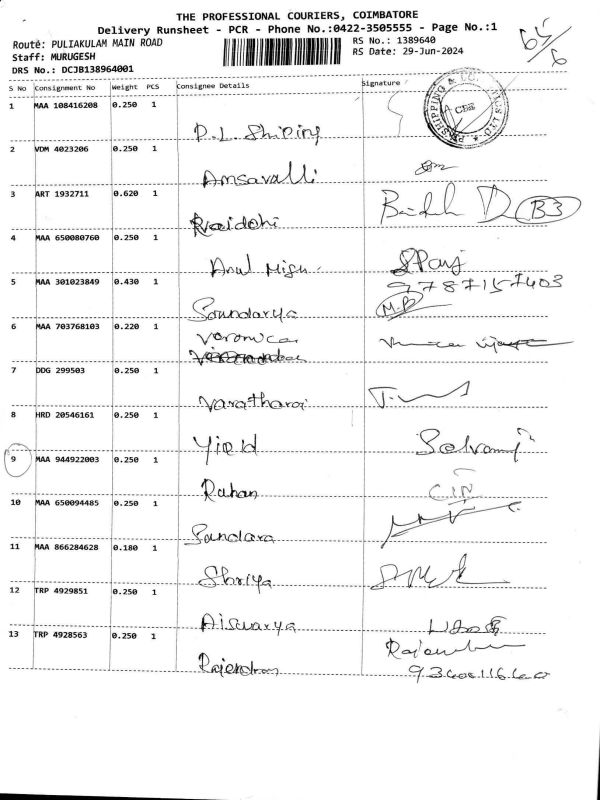 THE PROFESSIONAL COURIERS, COIMBATORE
Delivery Runsheet - PCR - Phone No.:0422-3505555 - Page No.:1
Route: PULIAKULAM MAIN ROAD RS No.: 1389640
Staff: MURUGESH RS Date: 29-Jun-2024
DRS No.: DCJB138964001
S No Consignment No Weight PCS Consignee Details Signature
1 MAA 108416208 0.250 1
P.L. Shiping
2 VDM 4023206 0.250 1
Amsavalli
3 ART 1932711 0.620 1
B3
4 MAA 650080760 0.250 1
Arul
5 MAA 301023849 0.430 1
9787157403
Soundarya M.B
6 MAA 703768103 0.220 1
Veronica
7 DDG 299503 0.250 1
Varatharaj
8 HRD 20546161 0.250 1
Yield Selvamg
9 MAA 944922003 0.250 1
Rahan C.I.N
10 MAA 650094485 0.250 1
Sandara
11 MAA 866284628 0.180 1
Shriya
12 TRP 4929851 0.250 1
Aiswarya
13 TRP 4928563 0.250 1
Rajendran